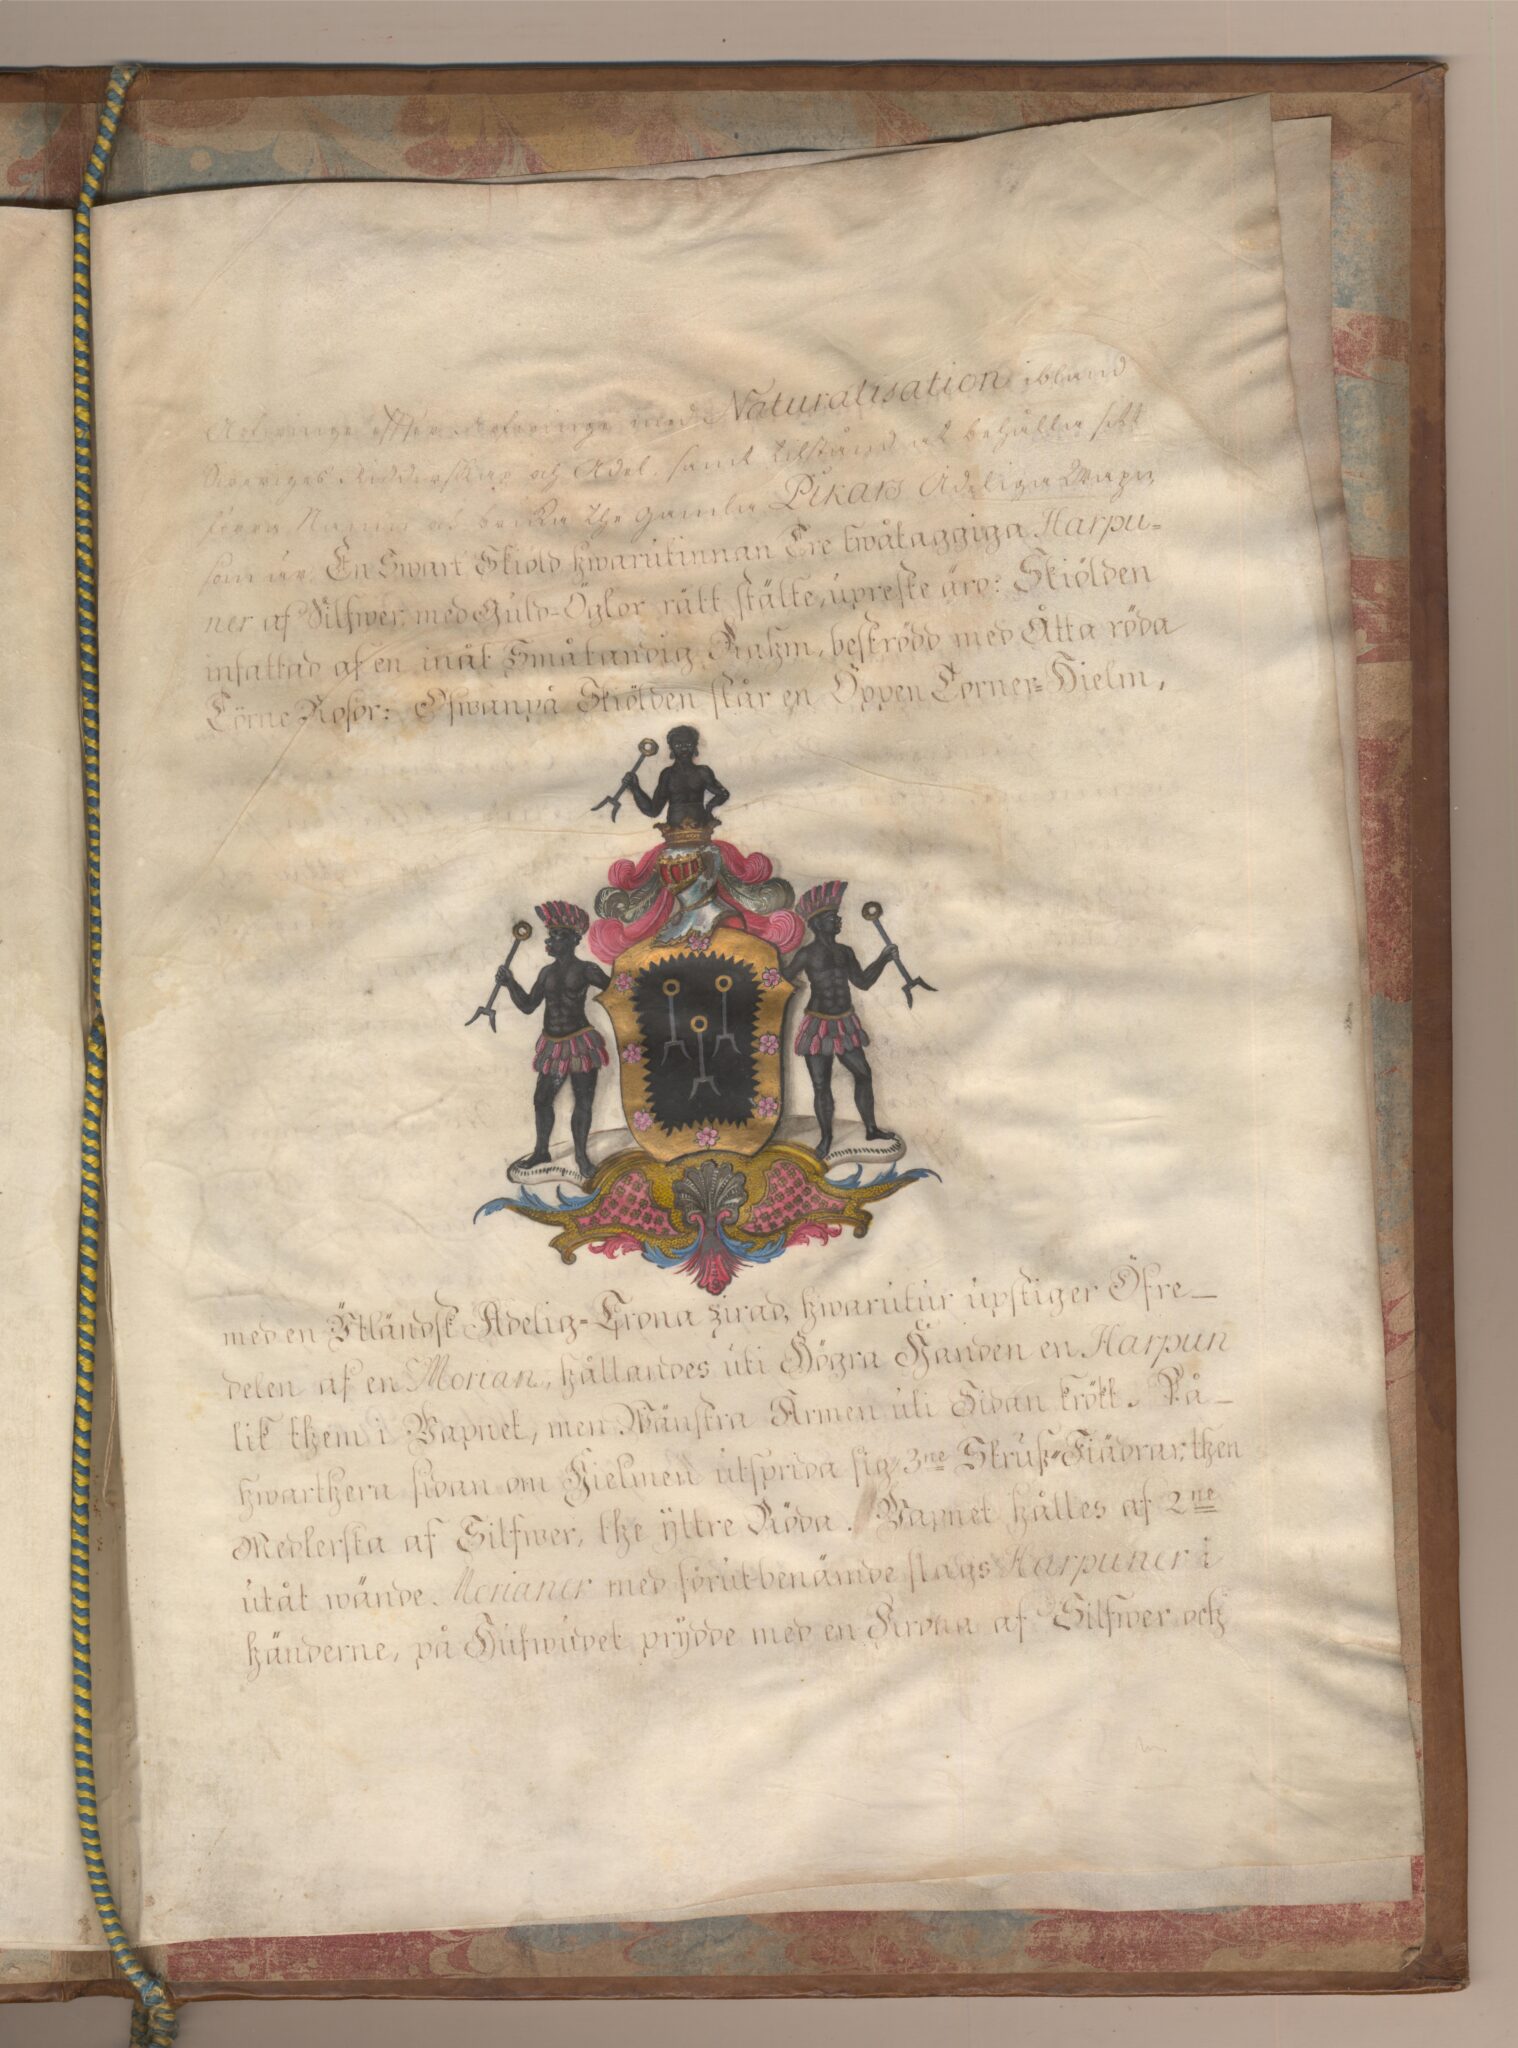 Arfvinge effter Arfvinge med Naturalisation ibland
Sweriges Ridderskap och Adel, samt tilstånd at behålla sitt
förra Namn at bruka the gamla Pikars Adeliga Wapn
som är: En Swart Skiöld hwarutinnan Tre twåtaggiga Harpu-
ner af Silfwer med Guld-Öglor rätt stälte, upreste äro: Skiölden
infattad af en inåt Småtandig Rahm, beströdd med Åtta röda
Törne Rosor: Ofwanpå Skiölden står en Öppen Torner-Hielm,
med en Utländsk Adelig-Crona zirad, hwarutur upstiger Öfre-
delen af en Morian, hållandes uti Högra Handen en Harpun
lik them i Wapnet, men Wänstra Armen uti Sidan krökt. På
hwarthera sidan om Hielmen utsprida sig 3ne Struß-Fiädrar, then
Medlersta af Silfwer, the yttre Röda. Wapnet hålles af 2ne
utåt wände Morianer med förutbenämde slags Harpuner i
händerne, på Hufwudet prydde med en Krona af Silfwer och